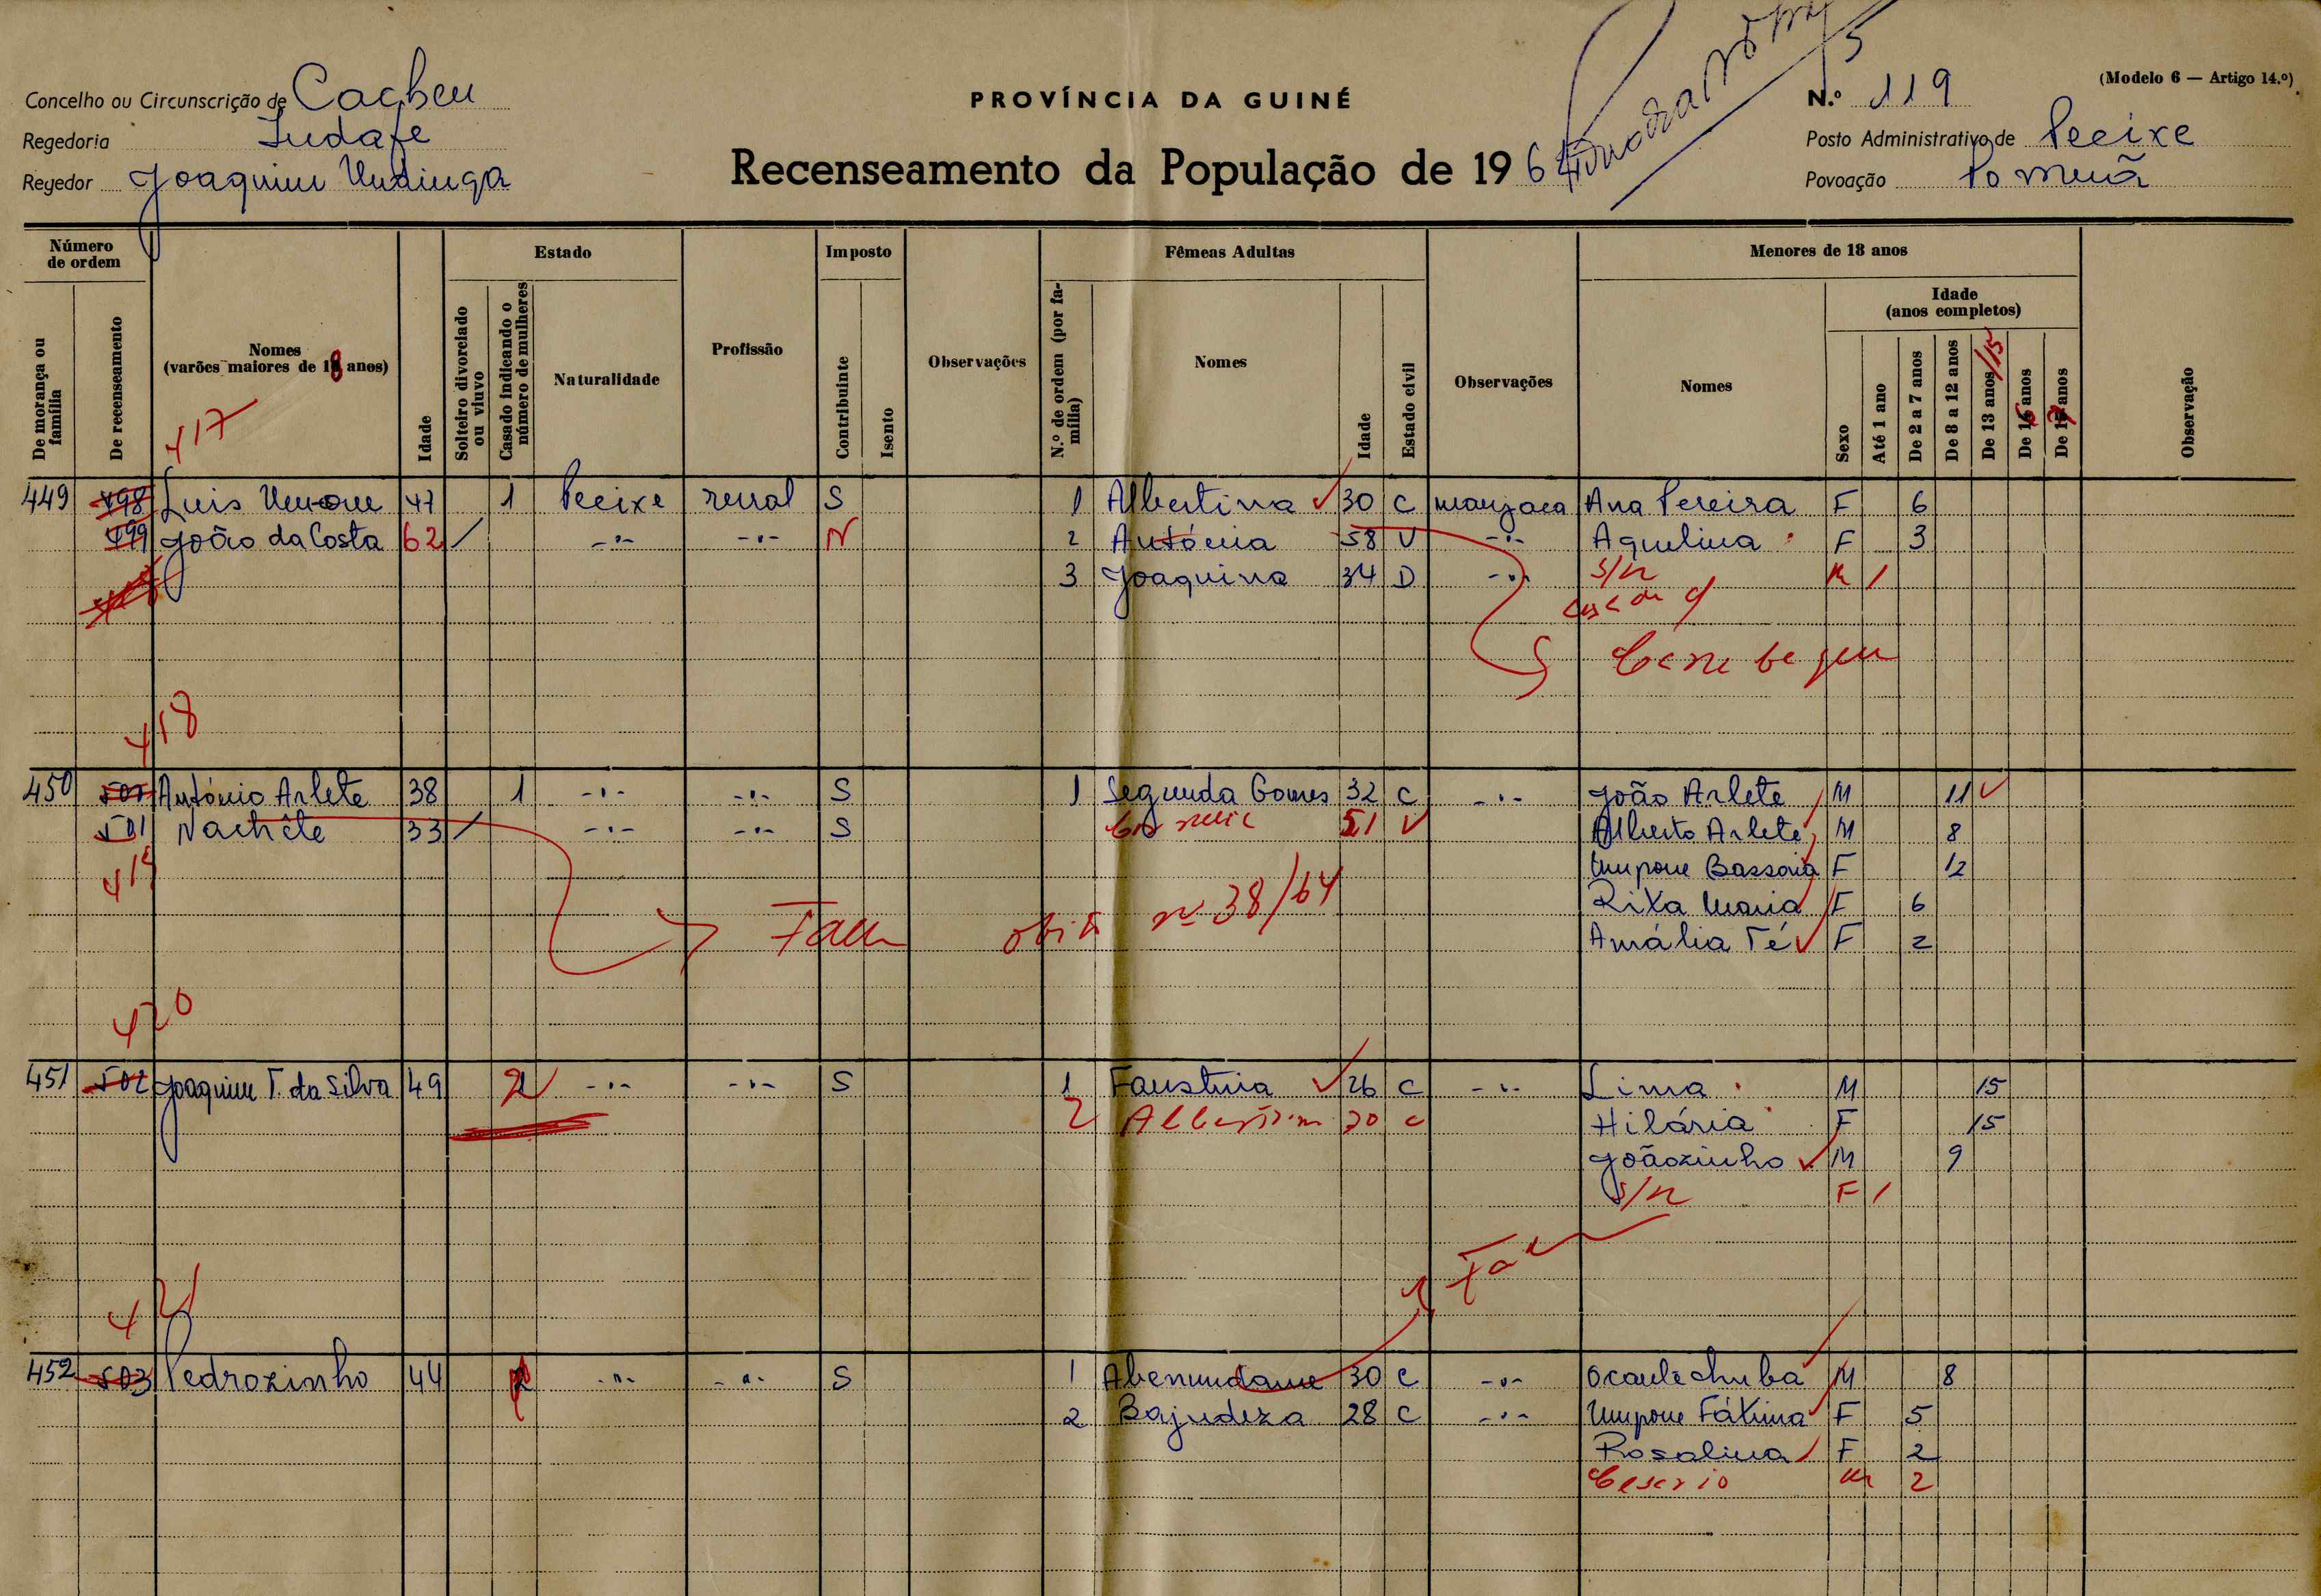 Concelho ou Circunscrição de Cacheu
Regedoria Indafe
Regedor Joaquim Undinga
PROVÍNCIA DA GUINÉ
Recenseamento da População de 196
(Modelo 6 — Artigo 14.º)
N.º 119
Posto Administrativo de Pecixe
Povoação
Número de ordem
De morança ou família
De recenseamento
Nomes (varões maiores de 18 anos)
Idade
Estado
Solteiro divorciado ou viuvo
Casado indicando o número de mulheres
Naturalidade
Profissão
Imposto
Contribuinte
Isento
Observações
Fêmeas Adultas
N.º de ordem (por família)
Nomes
Idade
Estado civil
Observações
Menores de 18 anos
Nomes
Idade (anos completos)
Sexo
Até 1 ano
De 2 a 7 anos
De 8 a 12 anos
De 13 anos /15
De 16 anos
De 17 anos
Observação
417
449 498 Luis 47 1 Pecixe rural S 1 Albertina 30 C manjaca Ana Pereira F 6
499 João da Costa 62 / -"- -"- N 2 Antónia 58 V -"- Aquelina F 3
3 Joaquina 34 D -"- S/n M 1
418
450 500 António Arlete 38 1 -"- -"- S 1 Segunda Gomes 32 C -"- João Arlete M 11
501 Nachête 33 / -"- -"- S 51 V Alberto Arlete M 8
419
Umpone Bassoria F 12
Rita Maria F 6
Falec obito nº 38/64
Amália Té F 2
420
451 502 Joaquim T. da Silva 49 2 -"- -"- S 1 Faustina 26 C -"- Lima M 15
2 Albertina 20 C Hilária F 15
Joãozinho M 9
S/n F 1
421
452 503 Pedrozinho 44 2 -"- -"- S 1 Abenundame 30 C -"- Ocante chuba M 8
2 Bajudeza 28 C -"- Umpone Fátima F 5
Rosalina F 2
M 2